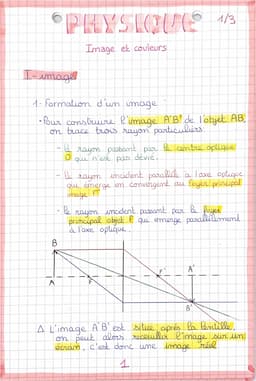 PHYSIQUE 1/3
Image et couleurs
I - image
1. Formation d'un image
• Pour construire l'image A'B' de l'objet AB,
on trace trois rayon particuliers:
- le rayon passant par le centre optique
O qui n'est pas dévié.
- le rayon incident parallèle à l'axe optique
qui émerge en convergent au foyer principal
image F'
- le rayon incident passant par le foyer
principal objet F qui émerge parallèlement
à l'axe optique.
B
F' A'
A F
B'
Δ L'image A'B' est situé après la lentille,
on peut alors recueillir l'image sur un
écran, c'est donc une image réel
1